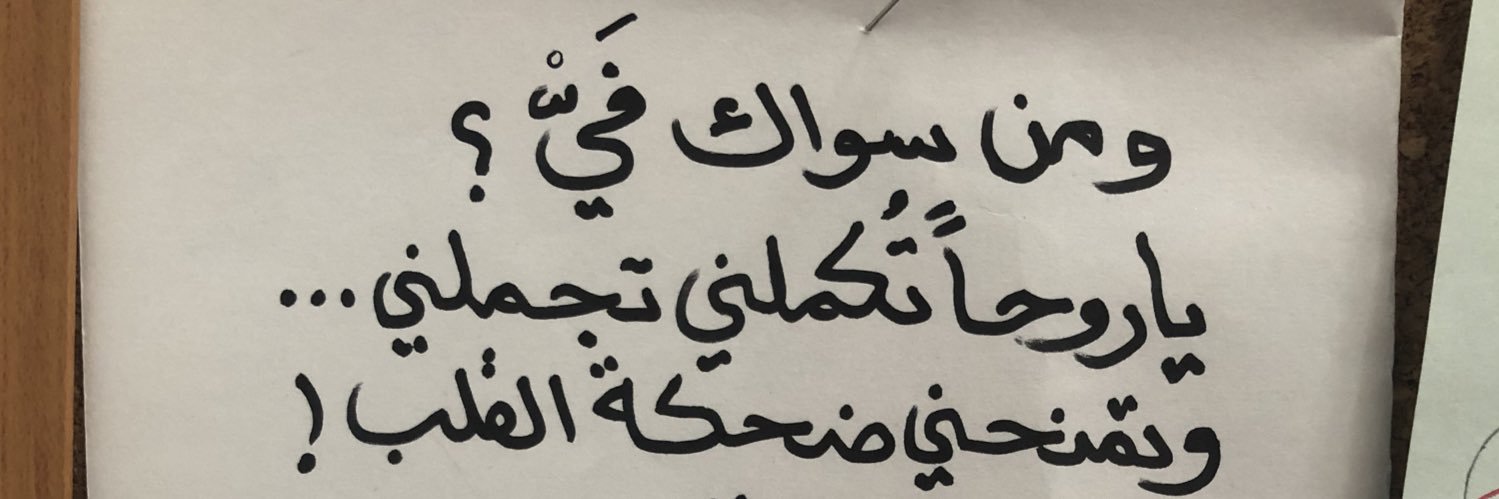 ومن سواك فَيّْ ؟
ياروحاً تُكملني تجملني ...
وتمنحني ضحكة القلب !